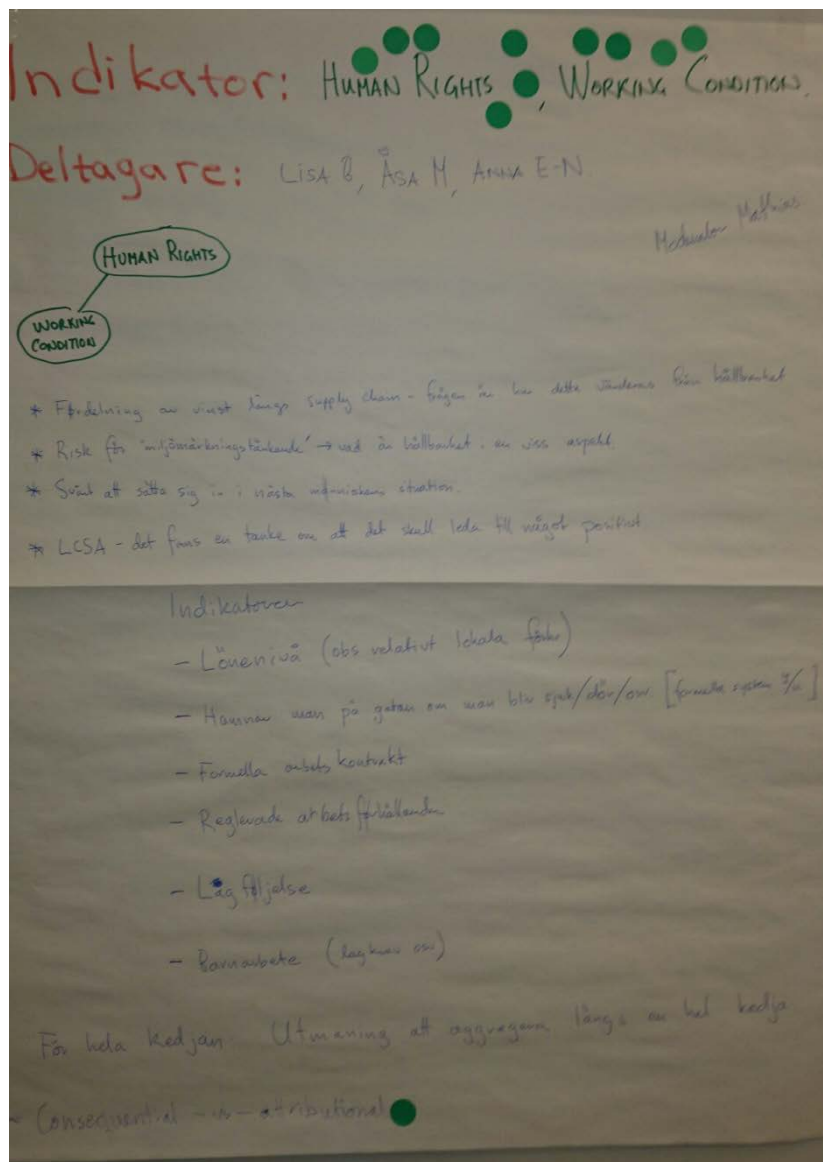 Indikator: HUMAN RIGHTS, WORKING CONDITION.
Deltagare: LISA B, ÅSA M, ANNA E-N
Moderator Mathias
HUMAN RIGHTS
WORKING
CONDITION
* Fördelning av vinst längs supply chain - frågan är hur detta värderas från hållbarhet
* Risk för "miljömärkningstänkande" → vad är hållbarhet, en viss aspekt.
* Svårt att sätta sig in i nästa människans situation.
* LCSA - det finns en tanke om att det skall leda till något positivt
Indikatorer
- Lönenivå (obs relativt lokala förh)
- Hamnar man på gatan om man blir sjuk/dör/osv. [formella system
- Formella arbetskontrakt
- Reglerade arbetsförhållanden
- Lagföljelse
- Barnarbete (lagkrav osv)
För hela kedjan: Utmaning att aggregera längs en hel kedja
- Consequential -vs- attributional